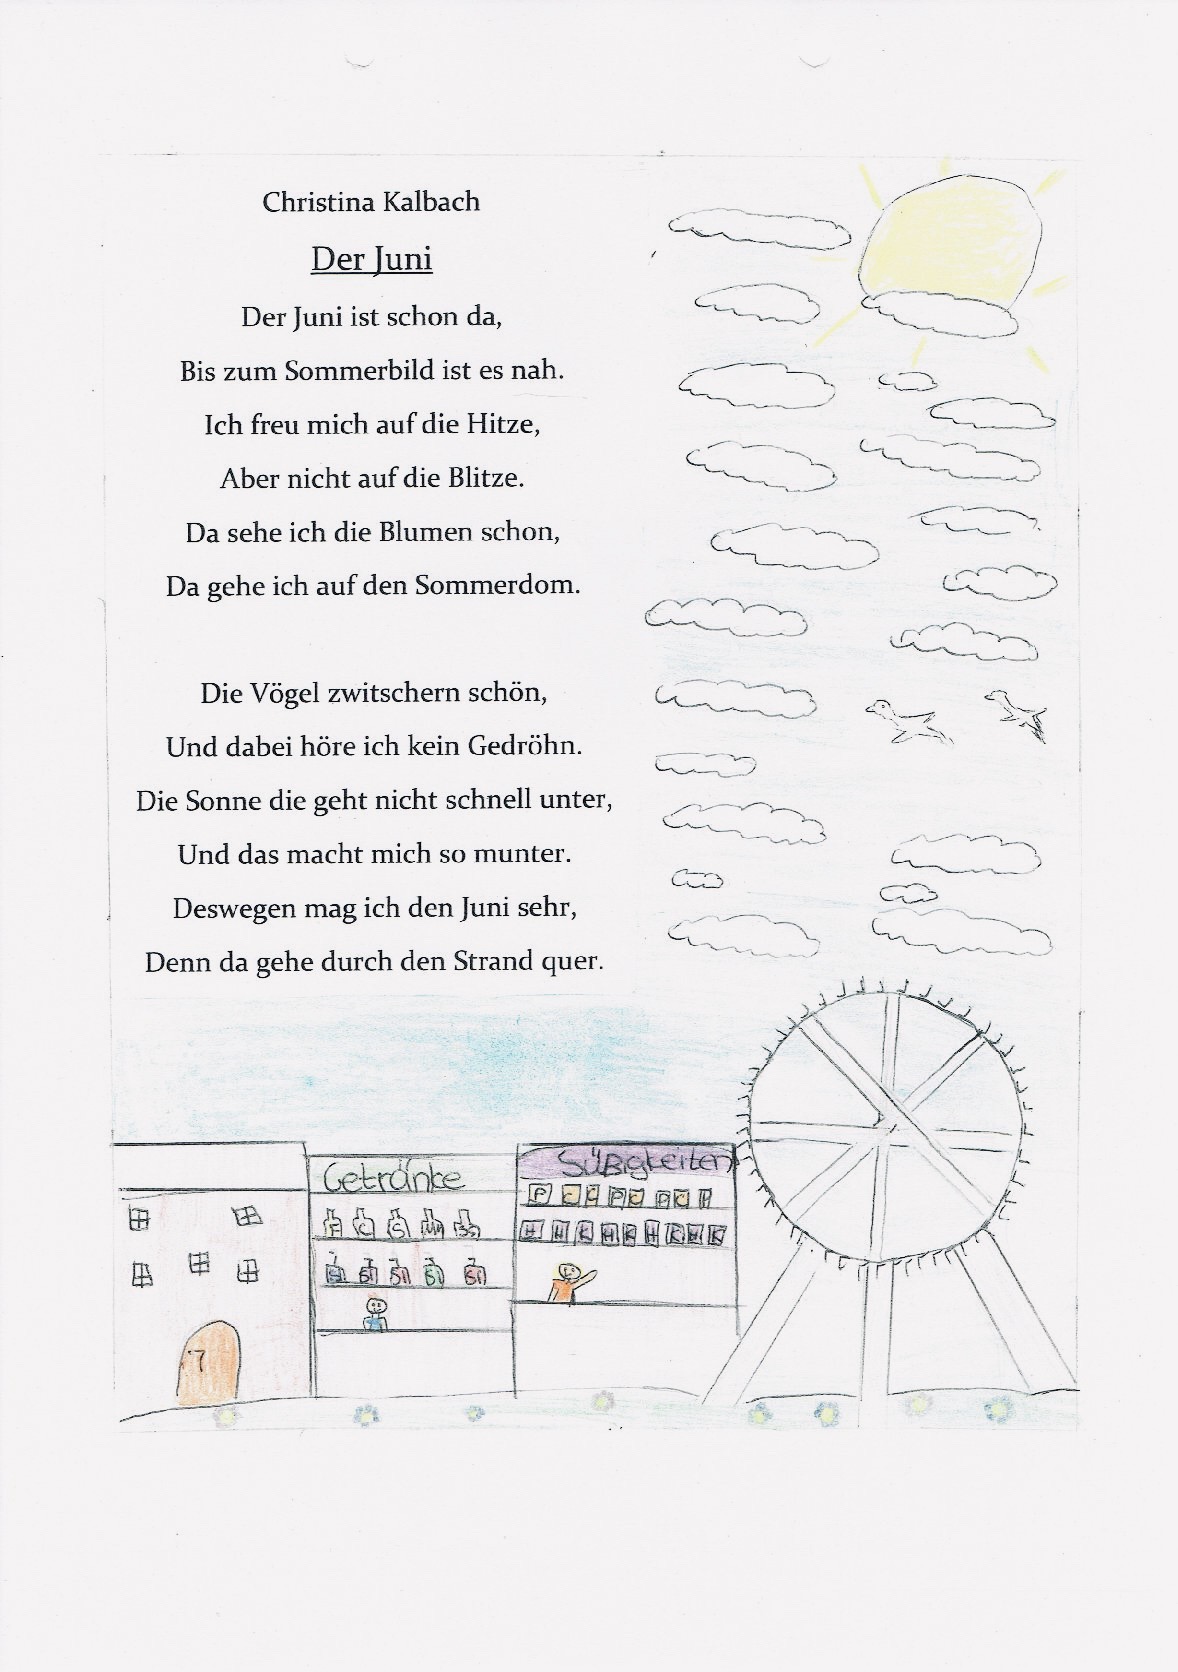 Christina Kalbach
Der Juni
Der Juni ist schon da,
Bis zum Sommerbild ist es nah.
Ich freu mich auf die Hitze,
Aber nicht auf die Blitze.
Da sehe ich die Blumen schon,
Da gehe ich auf den Sommerdom.
Die Vögel zwitschern schön,
Und dabei höre ich kein Gedröhn.
Die Sonne die geht nicht schnell unter,
Und das macht mich so munter.
Deswegen mag ich den Juni sehr,
Denn da gehe durch den Strand quer.
Getränke
Süßigkeiten